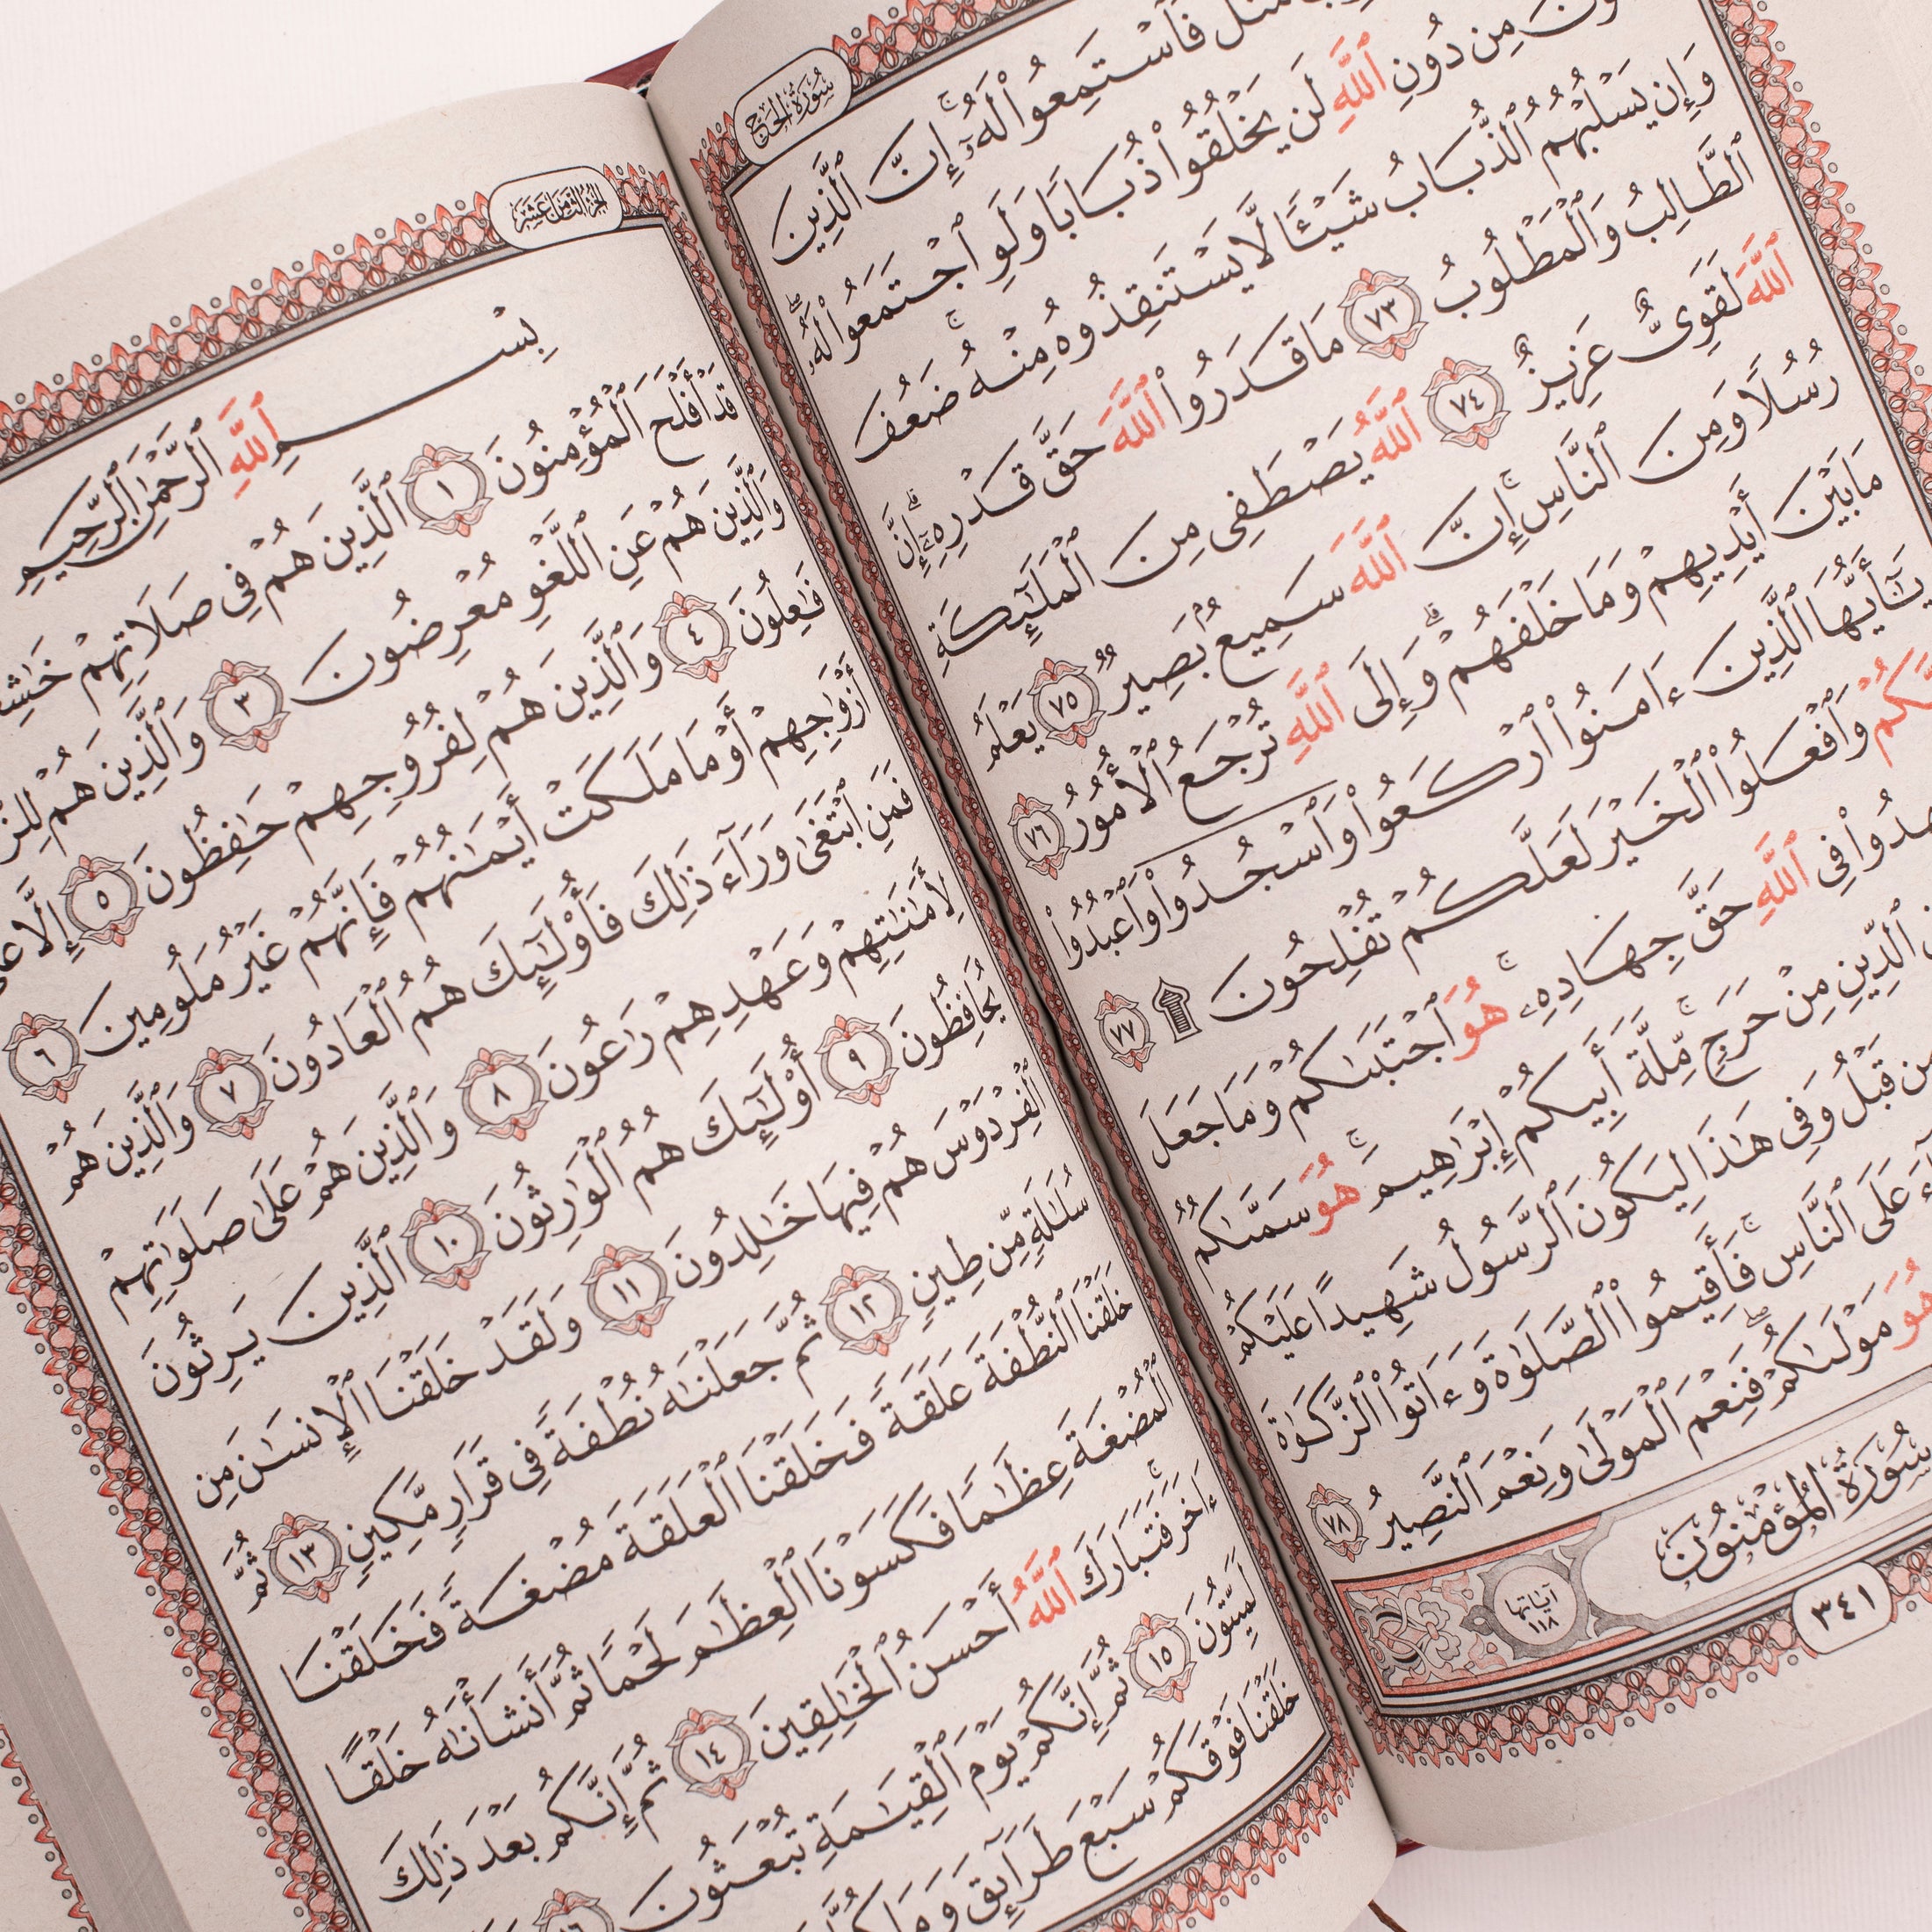 سُورَةُ الحَجِّ
مَثَلٌ فَٱسْتَمِعُوا۟ لَهُۥٓ ۚ إِنَّ ٱلَّذِينَ
مِن دُونِ ٱللَّهِ لَن يَخْلُقُوا۟ ذُبَابًا وَلَوِ ٱجْتَمَعُوا۟ لَهُۥ ۖ
وَإِن يَسْلُبْهُمُ ٱلذُّبَابُ شَيْـًٔا لَّا يَسْتَنقِذُوهُ مِنْهُ ۚ ضَعُفَ
ٱلطَّالِبُ وَٱلْمَطْلُوبُ ٧٣ مَا قَدَرُوا۟ ٱللَّهَ حَقَّ قَدْرِهِۦٓ ۗ إِنَّ
ٱللَّهَ لَقَوِىٌّ عَزِيزٌ ٧٤ ٱللَّهُ يَصْطَفِى مِنَ ٱلْمَلَـٰٓئِكَةِ
رُسُلًا وَمِنَ ٱلنَّاسِ ۚ إِنَّ ٱللَّهَ سَمِيعٌۢ بَصِيرٌ ٧٥ يَعْلَمُ
مَا بَيْنَ أَيْدِيهِمْ وَمَا خَلْفَهُمْ ۗ وَإِلَى ٱللَّهِ تُرْجَعُ ٱلْأُمُورُ ٧٦
يَـٰٓأَيُّهَا ٱلَّذِينَ ءَامَنُوا۟ ٱرْكَعُوا۟ وَٱسْجُدُوا۟ وَٱعْبُدُوا۟
وَٱفْعَلُوا۟ ٱلْخَيْرَ لَعَلَّكُمْ تُفْلِحُونَ ۩ ٧٧
فِى ٱللَّهِ حَقَّ جِهَادِهِۦ ۚ هُوَ ٱجْتَبَىٰكُمْ وَمَا جَعَلَ
ٱلدِّينِ مِنْ حَرَجٍ ۚ مِّلَّةَ أَبِيكُمْ إِبْرَٰهِيمَ ۚ هُوَ سَمَّىٰكُمُ
قَبْلُ وَفِى هَـٰذَا لِيَكُونَ ٱلرَّسُولُ شَهِيدًا عَلَيْكُمْ
عَلَى ٱلنَّاسِ ۚ فَأَقِيمُوا۟ ٱلصَّلَوٰةَ وَءَاتُوا۟ ٱلزَّكَوٰةَ
هُوَ مَوْلَىٰكُمْ ۖ فَنِعْمَ ٱلْمَوْلَىٰ وَنِعْمَ ٱلنَّصِيرُ ٧٨
سُورَةُ المُؤْمِنُونَ
آيَاتُهَا ١١٨
٣٤١
الجُزْءُ الثَّامِنَ عَشَرَ
بِسْمِ ٱللَّهِ ٱلرَّحْمَـٰنِ ٱلرَّحِيمِ
قَدْ أَفْلَحَ ٱلْمُؤْمِنُونَ ١ ٱلَّذِينَ هُمْ فِى صَلَاتِهِمْ
وَٱلَّذِينَ هُمْ عَنِ ٱللَّغْوِ مُعْرِضُونَ ٣ وَٱلَّذِينَ هُمْ
فَـٰعِلُونَ ٤ وَٱلَّذِينَ هُمْ لِفُرُوجِهِمْ حَـٰفِظُونَ ٥ إِلَّا
أَزْوَٰجِهِمْ أَوْ مَا مَلَكَتْ أَيْمَـٰنُهُمْ فَإِنَّهُمْ غَيْرُ مَلُومِينَ ٦
فَمَنِ ٱبْتَغَىٰ وَرَآءَ ذَٰلِكَ فَأُو۟لَـٰٓئِكَ هُمُ ٱلْعَادُونَ ٧ وَٱلَّذِينَ هُمْ
لِأَمَـٰنَـٰتِهِمْ وَعَهْدِهِمْ رَٰعُونَ ٨ وَٱلَّذِينَ هُمْ عَلَىٰ صَلَوَٰتِهِمْ
يُحَافِظُونَ ٩ أُو۟لَـٰٓئِكَ هُمُ ٱلْوَٰرِثُونَ ١٠ ٱلَّذِينَ يَرِثُونَ
ٱلْفِرْدَوْسَ هُمْ فِيهَا خَـٰلِدُونَ ١١ وَلَقَدْ خَلَقْنَا ٱلْإِنسَـٰنَ مِن
سُلَـٰلَةٍ مِّن طِينٍ ١٢ ثُمَّ جَعَلْنَـٰهُ نُطْفَةً فِى قَرَارٍ مَّكِينٍ ١٣ ثُمَّ
خَلَقْنَا ٱلنُّطْفَةَ عَلَقَةً فَخَلَقْنَا ٱلْعَلَقَةَ مُضْغَةً فَخَلَقْنَا
ٱلْمُضْغَةَ عِظَـٰمًا فَكَسَوْنَا ٱلْعِظَـٰمَ لَحْمًا ثُمَّ أَنشَأْنَـٰهُ خَلْقًا
ءَاخَرَ ۚ فَتَبَارَكَ ٱللَّهُ أَحْسَنُ ٱلْخَـٰلِقِينَ ١٤ ثُمَّ إِنَّكُم بَعْدَ ذَٰلِكَ
لَمَيِّتُونَ ١٥ ثُمَّ إِنَّكُمْ يَوْمَ ٱلْقِيَـٰمَةِ تُبْعَثُونَ ١٦
خَلَقْنَا فَوْقَكُمْ سَبْعَ طَرَآئِقَ وَمَا